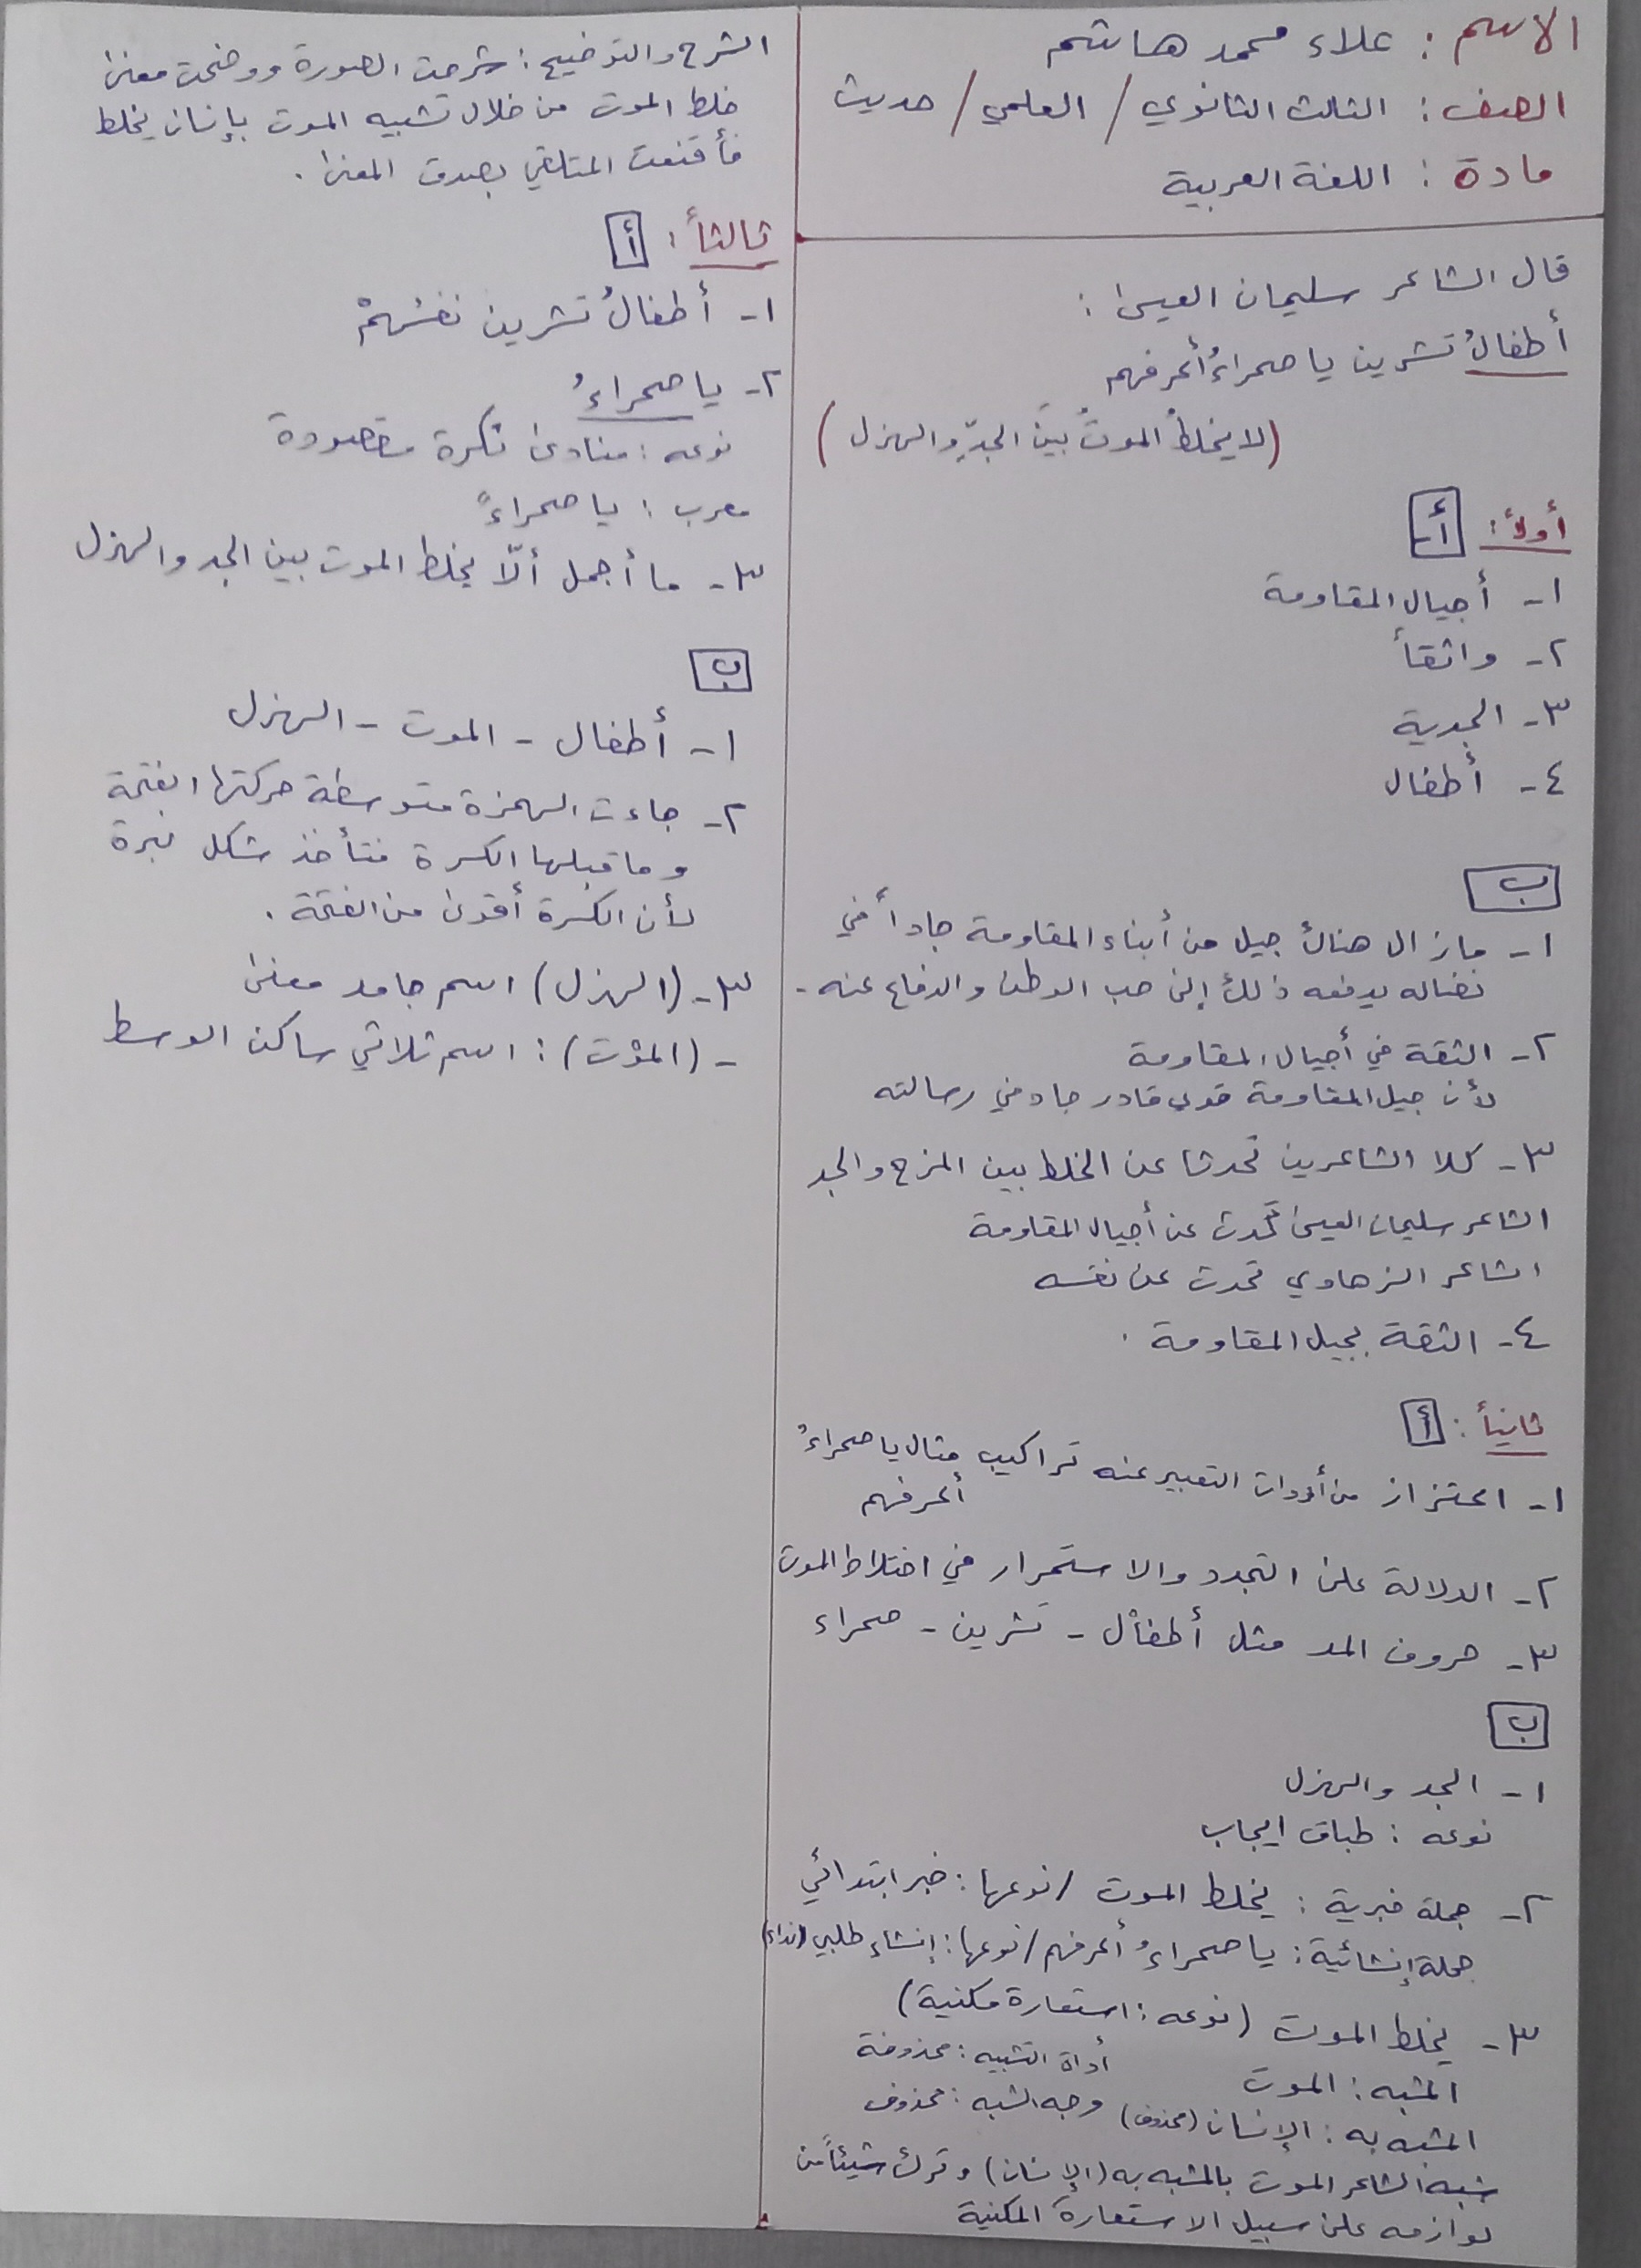 الاسم : علاء محمد هاشم
الصف : الثالث الثانوي / العلمي / حديث
مادة : اللغة العربية
قال الشاعر سليمان العيسى :
أطفالُ تشرين يا صحراءُ أعرفهم
(لا يخلطُ الموتُ بينَ الجدِّ والهزل)
أولاً : أ-
١- أجيال المقاومة
٢- واثقاً
٣- الجدية
٤- أطفال
ب
١- مازال هناك جيل من أبناء المقاومة جاداً في
نضاله يدفعه ذلك إلى حب الوطن والدفاع عنه -
٢- الثقة في أجيال المقاومة
لأن جيل المقاومة قوي قادر جاد في رسالته
٣- كلا الشاعرين تحدثا عن الخلط بين المزح والجد
الشاعر سليمان العيسى تحدث عن أجيال المقاومة
الشاعر الزهاوي تحدث عن نفسه
٤- الثقة بجيل المقاومة .
ثانياً : أ
١- اعتزاز من أدوات التعبير عنه تراكيب مثال يا صحراءُ
أعرفهم
٢- الدلالة على التجدد والاستمرار في اختلاط الموت
٣- حروف المد مثل أطفال - تشرين - صحراء
ب
١- الجد والهزل
نوعه : طباق ايجاب
٢- جملة خبرية : يخلط الموت / نوعها : خبر ابتدائي
جملة إنشائية : يا صحراءُ أعرفهم / نوعها : إنشاء طلبي (نداء)
٣- يخلط الموت (نوعه : استعارة مكنية)
المشبه : الموت أداة التشبيه : محذوفة
المشبه به : الإنسان (محذوف) وجه الشبه : محذوف
شبه الشاعر الموت بالمشبه به (الإنسان) وترك شيئاً من
لوازمه على سبيل الاستعارة المكنية
الشرح والتوضيح : شرحت الصورة ووضحت معنى
خلط الموت من خلال تشبيه الموت بإنسان يخلط
فأقنعت المتلقي بصدق المعنى .
ثالثاً : أ
١- أطفالُ تشرين نفسُهمْ
٢- يا صحراءُ
نوعه : منادى نكرة مقصودة
معرب : يا صحراءً
٣- ما أجمل ألّا يخلط الموت بين الجد والهزل
ب
١- أطفال - الموت - الهزل
٢- جاءت الهمزة متوسطة حركتها الفتحة
وما قبلها الكسرة فتأخذ شكل نبرة
لأن الكسرة أقوى من الفتحة .
٣- (الهزل) اسم جامد معنى
- (الموْت) : اسم ثلاثي ساكن الوسط